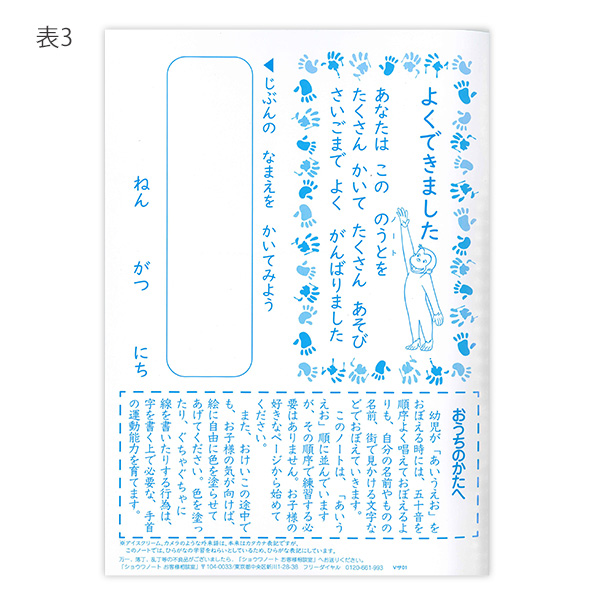 表3
よくできました
あなたは この のうとを
ノート
たくさん かいて たくさん あそび
さいごまで よく がんばりました
◀じぶんの なまえを かいてみよう
ねん がつ にち
おうちのかたへ
幼児が「あいうえお」を
おぼえる時には、五十音を
順序よく唱えておぼえるよ
りも、自分の名前やものの
名前、街で見かける文字な
どでおぼえていきます。
このノートは、「あいう
えお」順に並んでいます
が、その順序で練習する必
要はありません。お子様の
好きなページから始めて
ください。
また、おけいこの途中で
も、お子様の気が向けば、
絵に自由に色を塗らせて
あげてください。色を塗っ
たり、ぐちゃぐちゃに
線を書いたりする行為は、
字を書く上で必要な、手首
の運動能力を育てます。
※アイスクリーム、カメラのような外来語は、本来はカタカナ表記ですが、
このノートでは、ひらがなの学習をねらいとしているため、ひらがな表記にしています。
万一、落丁、乱丁等の不良品がございましたら、「ショウワノート お客様相談室」へお送りください。
「ショウワノート お客様相談室」〒104-0033/東京都中央区新川1-28-38 フリーダイヤル 0120-661-993 Vサ01